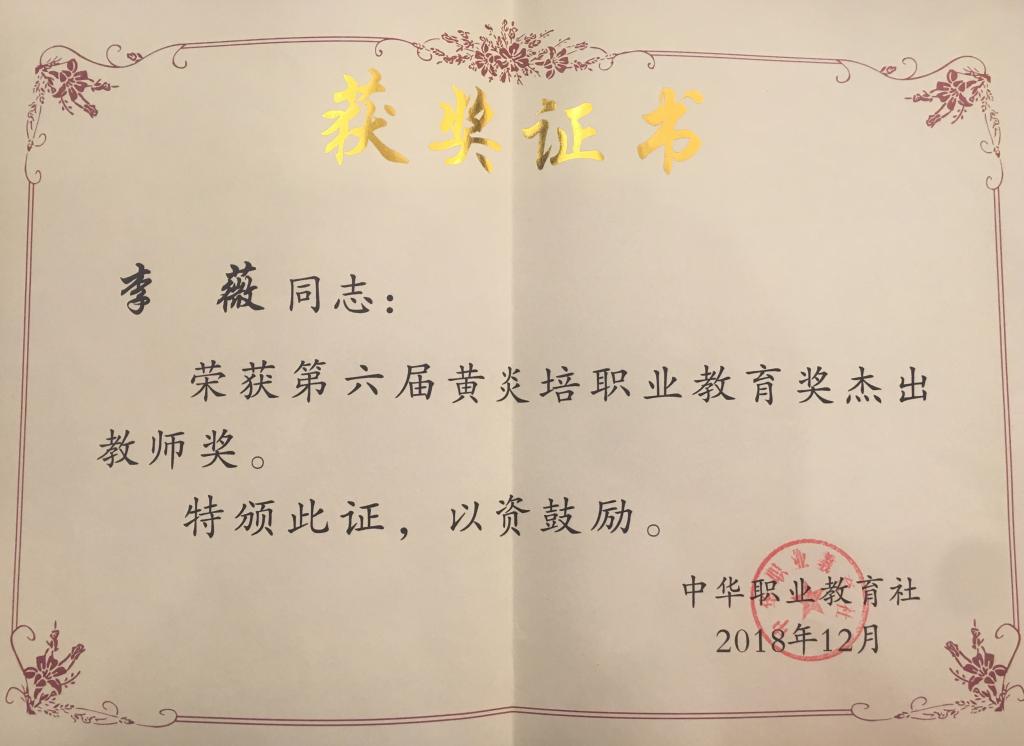 获奖证书
李 薇 同志：
荣获第六届黄炎培职业教育奖杰出
教师奖。
特颁此证，以资鼓励。
中华职业教育社
2018年12月
中华职业教育社